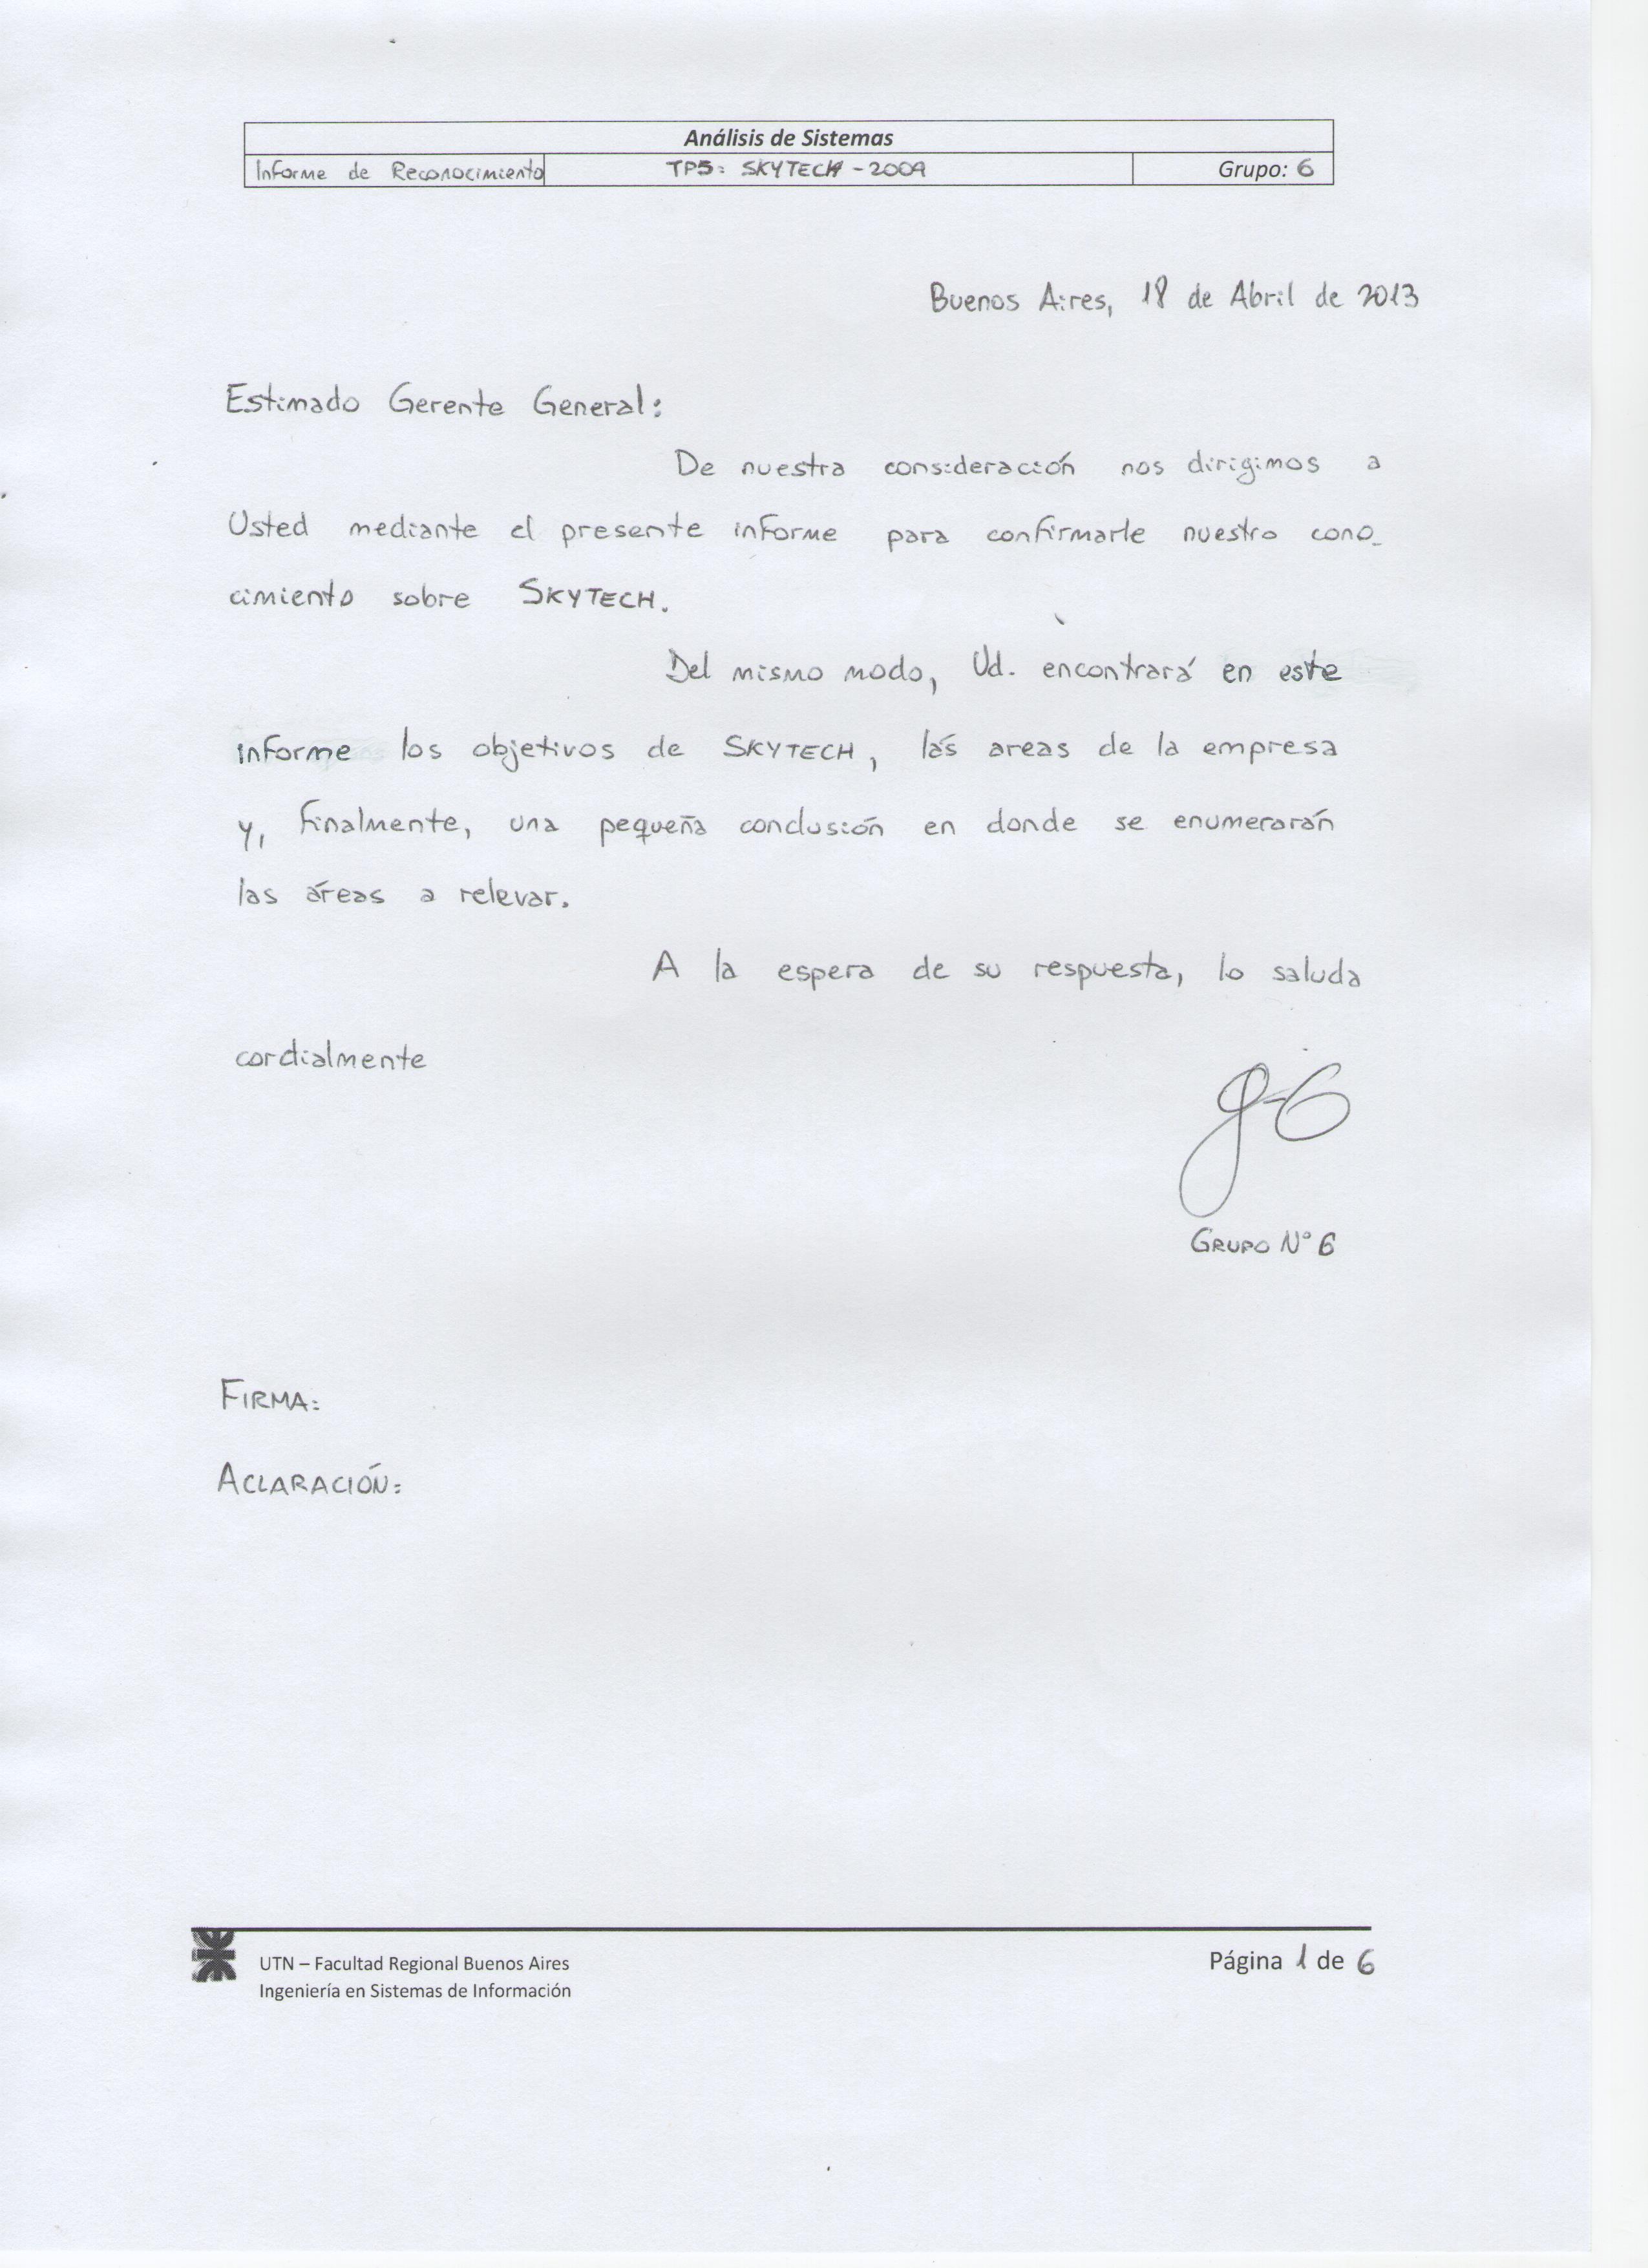 Análisis de Sistemas
Informe de Reconocimiento TP5: SKYTECH - 2009 Grupo: 6
Buenos Aires, 18 de Abril de 2013
Estimado Gerente General:
De nuestra consideración nos dirigimos a
Usted mediante el presente informe para confirmarle nuestro cono_
cimiento sobre SKYTECH.
Del mismo modo, Ud. encontrará en este
informe los objetivos de SKYTECH, las areas de la empresa
y, finalmente, una pequeña conclusión en donde se enumerarán
las áreas a relevar.
A la espera de su respuesta, lo saluda
cordialmente
g-6
GRUPO N° 6
FIRMA:
ACLARACIÓN:
UTN – Facultad Regional Buenos Aires
Ingeniería en Sistemas de Información
Página 1 de 6